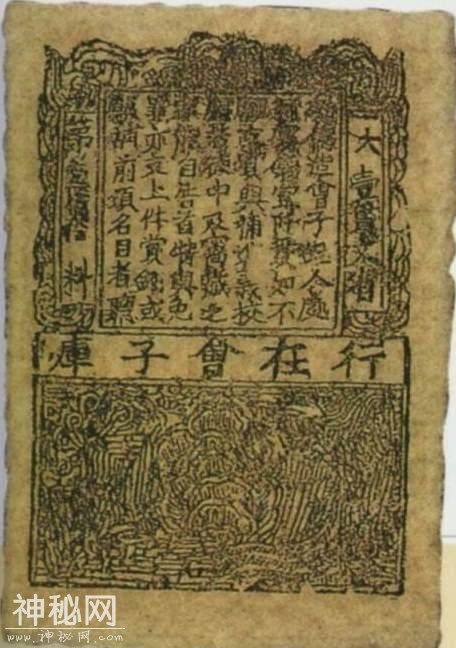 大壹貫文省
敕偽造會子犯人處
斬賞錢壹阡貫如不
願支賞與補進義校
尉若徒中及窩藏之
家能自告首特與免
罪亦支上件賞錢或
願補前項名目者聽
第料
行在會子庫
神秘网
www.神秘网.com